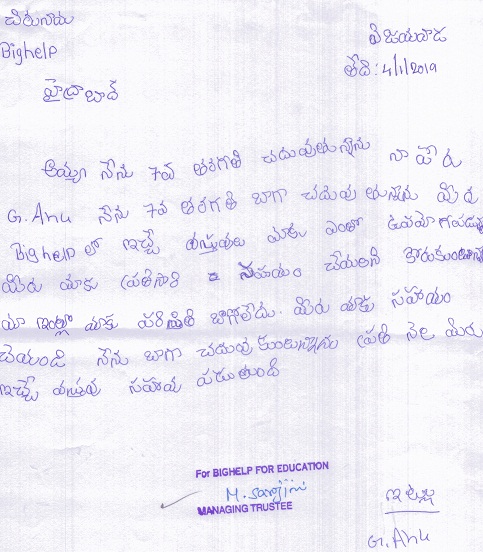 చిరునామ
Bighelp
హైద్రాబాద్
విజయవాడ
తేది : 4/1/2019
అమ్మా నేను 7వ తరగతి చదువుతున్నాను నా పేరు
G. Anu నేను 7వ తరగతి బాగా చదువుతున్నాను మీరు
Bighelp లో ఇచ్చే వస్తువులు మాకు ఎంతో ఉపయోగపడుతు
మీరు మాకు ప్రతిసారి సహాయం చేయాలని కోరుకుంటున్నా
మా ఇంట్లో మాకు పరిస్థితి బాగలేదు. మీరు మాకు సహాయం
చేయండి నేను బాగా చదువుకుంటున్నాను ప్రతి నెల మీరు
ఇచ్చే వస్తువు సహాయ పడుతుంది
For BIGHELP FOR EDUCATION
MANAGING TRUSTEE
ఇట్లు
G. Anu